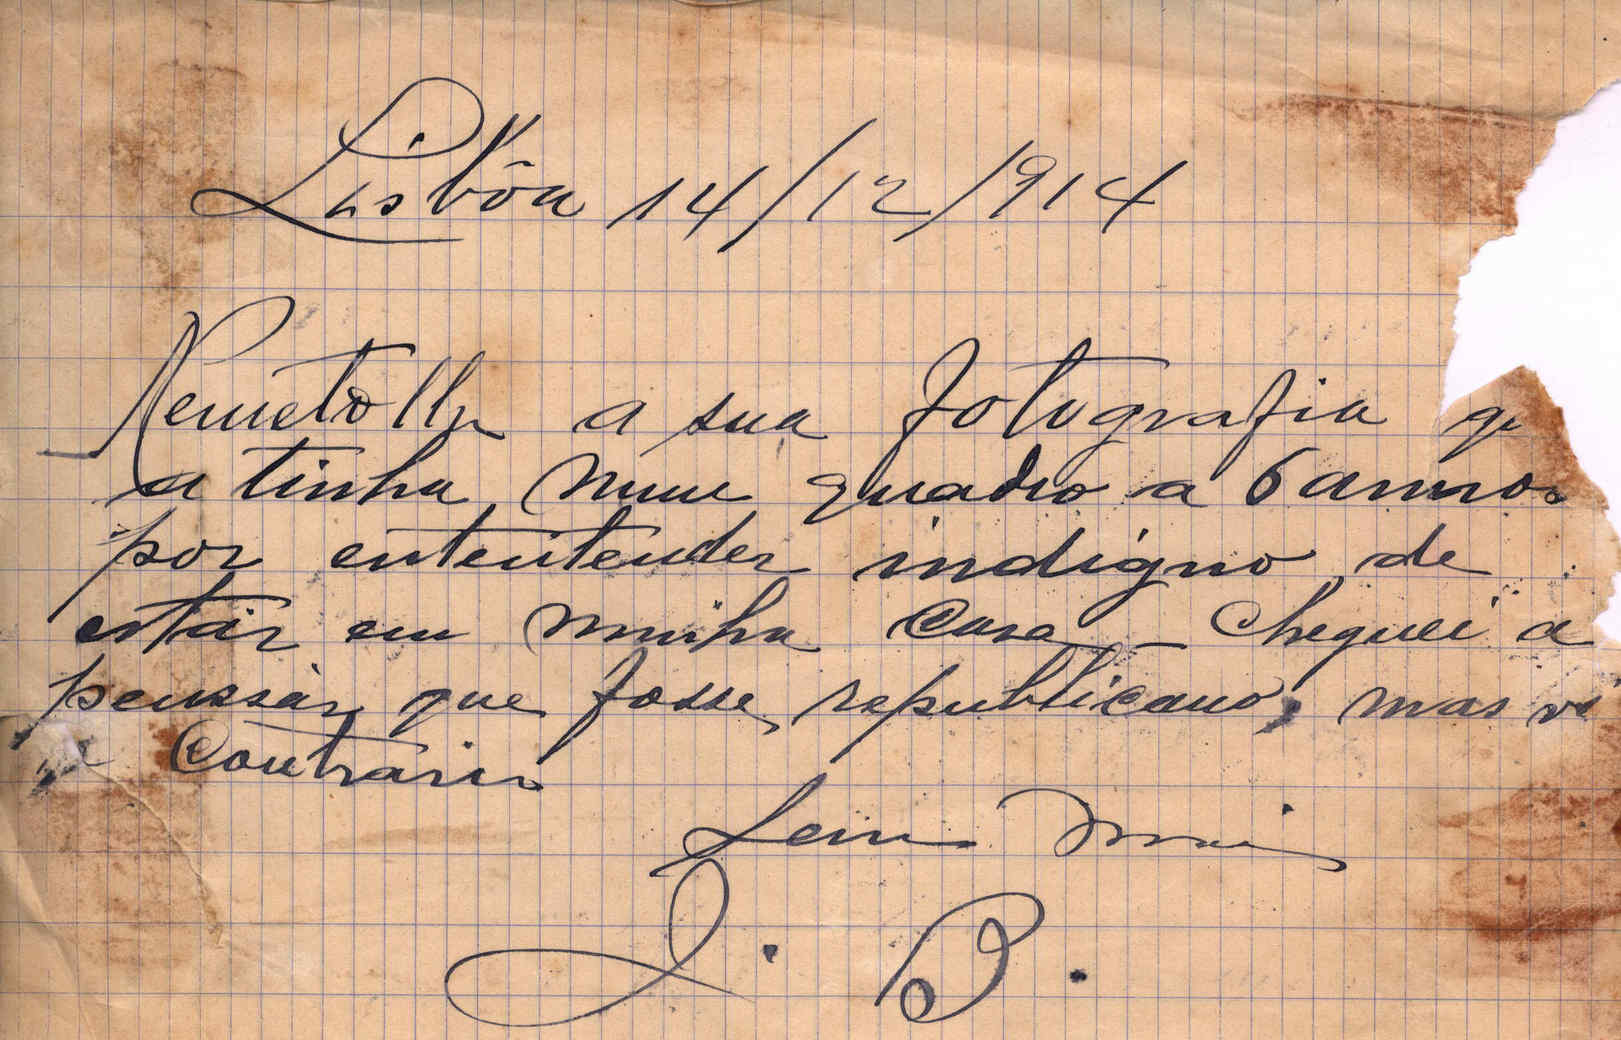 Lisbôa 14/12/914
Remetto lhe a sua fotografia q
a tinha num quadro a 6 annos
por ententender indigno de
estár em minha casa – Cheguei a
penssár que fosse republicano, mas vi
o Contrario
Sem mais
J. B.